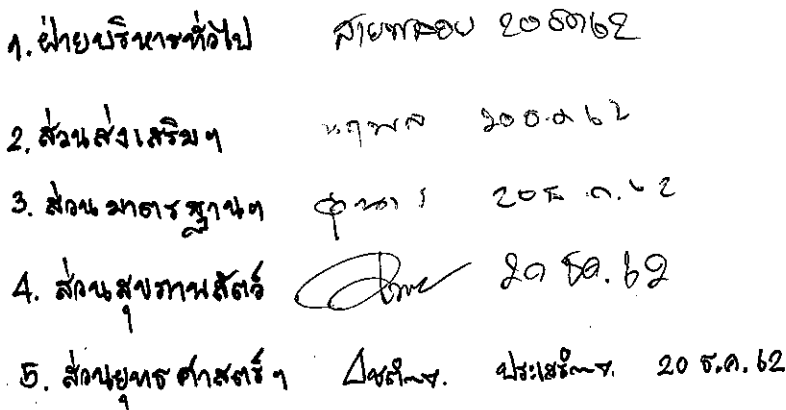 1. ฝ่ายบริหารทั่วไป สายพลอย 20 ธค 62
2. ส่วนส่งเสริมฯ นฤพล 20 ธ.ค 62
3. ส่วนมาตรฐานฯ 20 ธ.ค. 62
4. ส่วนสุขภาพสัตว์ 20 ธค. 62
5. ส่วนยุทธศาสตร์ฯ 20 ธ.ค. 62